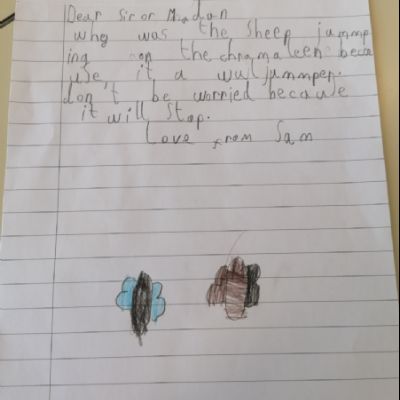 Dear Sir or Madan
why was the sheep jammp
ing on the chramaleen beca
use it a wuljammper.
don't be worried because
it will stop.
Love from Sam